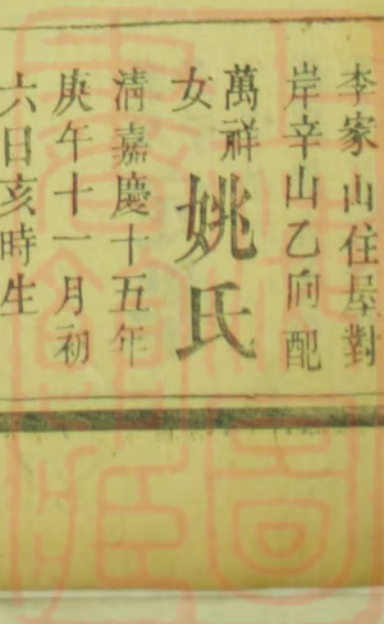 李家山住屋對
岸辛山乙向配
萬祥
女
姚氏
清嘉慶十五年
庚午十一月初
六日亥時生